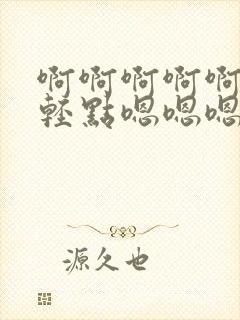 啊啊啊啊啊
轻點嗯嗯嗯
源久也